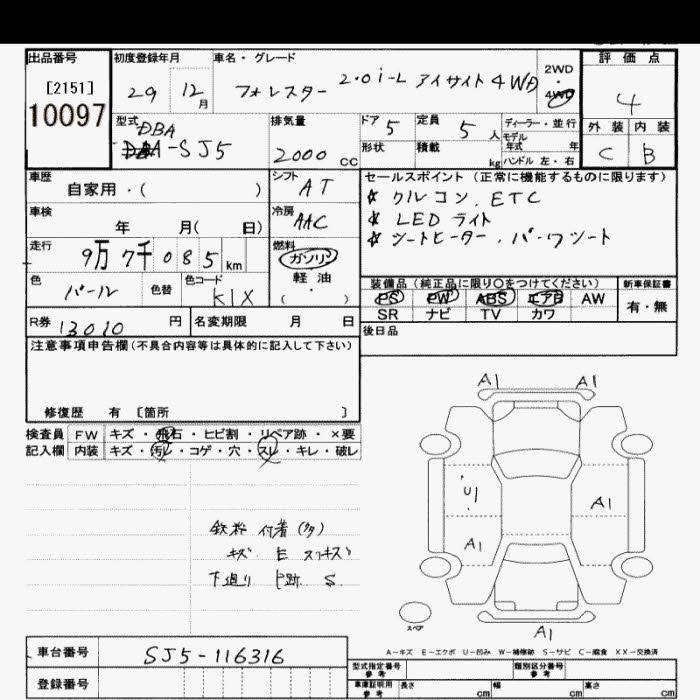 出品番号 初度登録年月 車名・グレード 2WD 4WD 評価点
[2151] 29 12月 フォレスター 2.0i-L アイサイト 4WD 4
10097
型式 DBA 排気量 ドア 定員 ディーラー・並行 外装 内装
-SJ5 2000cc 5 5人 モデル年式 年 C B
形状 積載 kg ハンドル 左・右
車歴 自家用・( ) シフト AT セールスポイント(正常に機能するものに限ります)
☆ クルコン、ETC
車検 年 月( 日) 冷房 AAC ☆ LEDライト
走行 9万7千085km 燃料 ガソリン ☆ シートヒーター・パーワシート
軽油・( )
色 パール 色替 色コード K1X 装備品(純正品に限り○をつけてください) 新車保証書
PS PW ABS エアB AW 有・無
R券 13010円 名変期限 月 日 SR ナビ TV カワ
後日品
注意事項申告欄(不具合内容等は具体的に記入して下さい)
修復歴 有 [箇所 ]
検査員 FW キズ・飛石・ヒビ割・リペア跡・×要
記入欄 内装 キズ・汚レ・コゲ・穴・スレ・キレ・破レ
A1 A1
U1 A1
A1
鉄粉 付着(多)
キズ E スリキズ
下廻り 跡 S
スペア
A1
A-キズ E-エクボ U-凹み W-補修跡 S-サビ C-腐食 XX-交換済
車台番号 SJ5-116316
型式指定番号 参考 類別区分番号 参考
登録番号 車庫証明用 参考 長さ cm 幅 cm 高さ cm